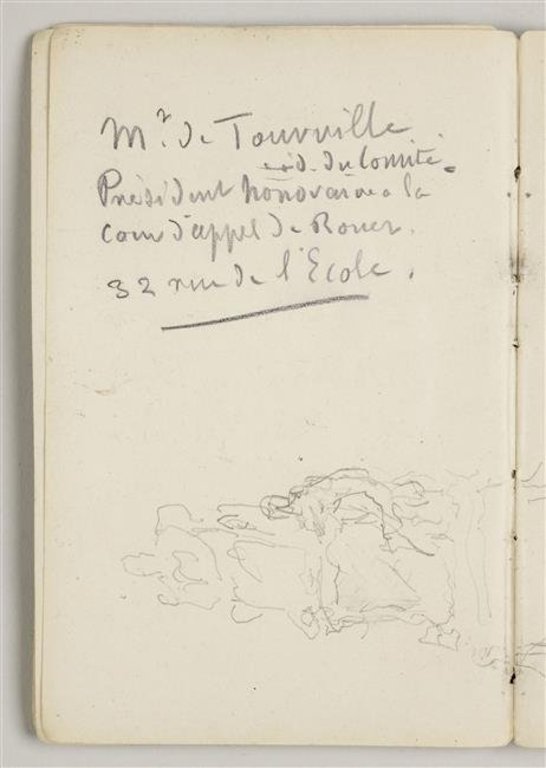 Mr. de Tourville
id. du Comité.
Président honoraire a la
cour d'appel de Rouen.
32 rue de l'Ecole.